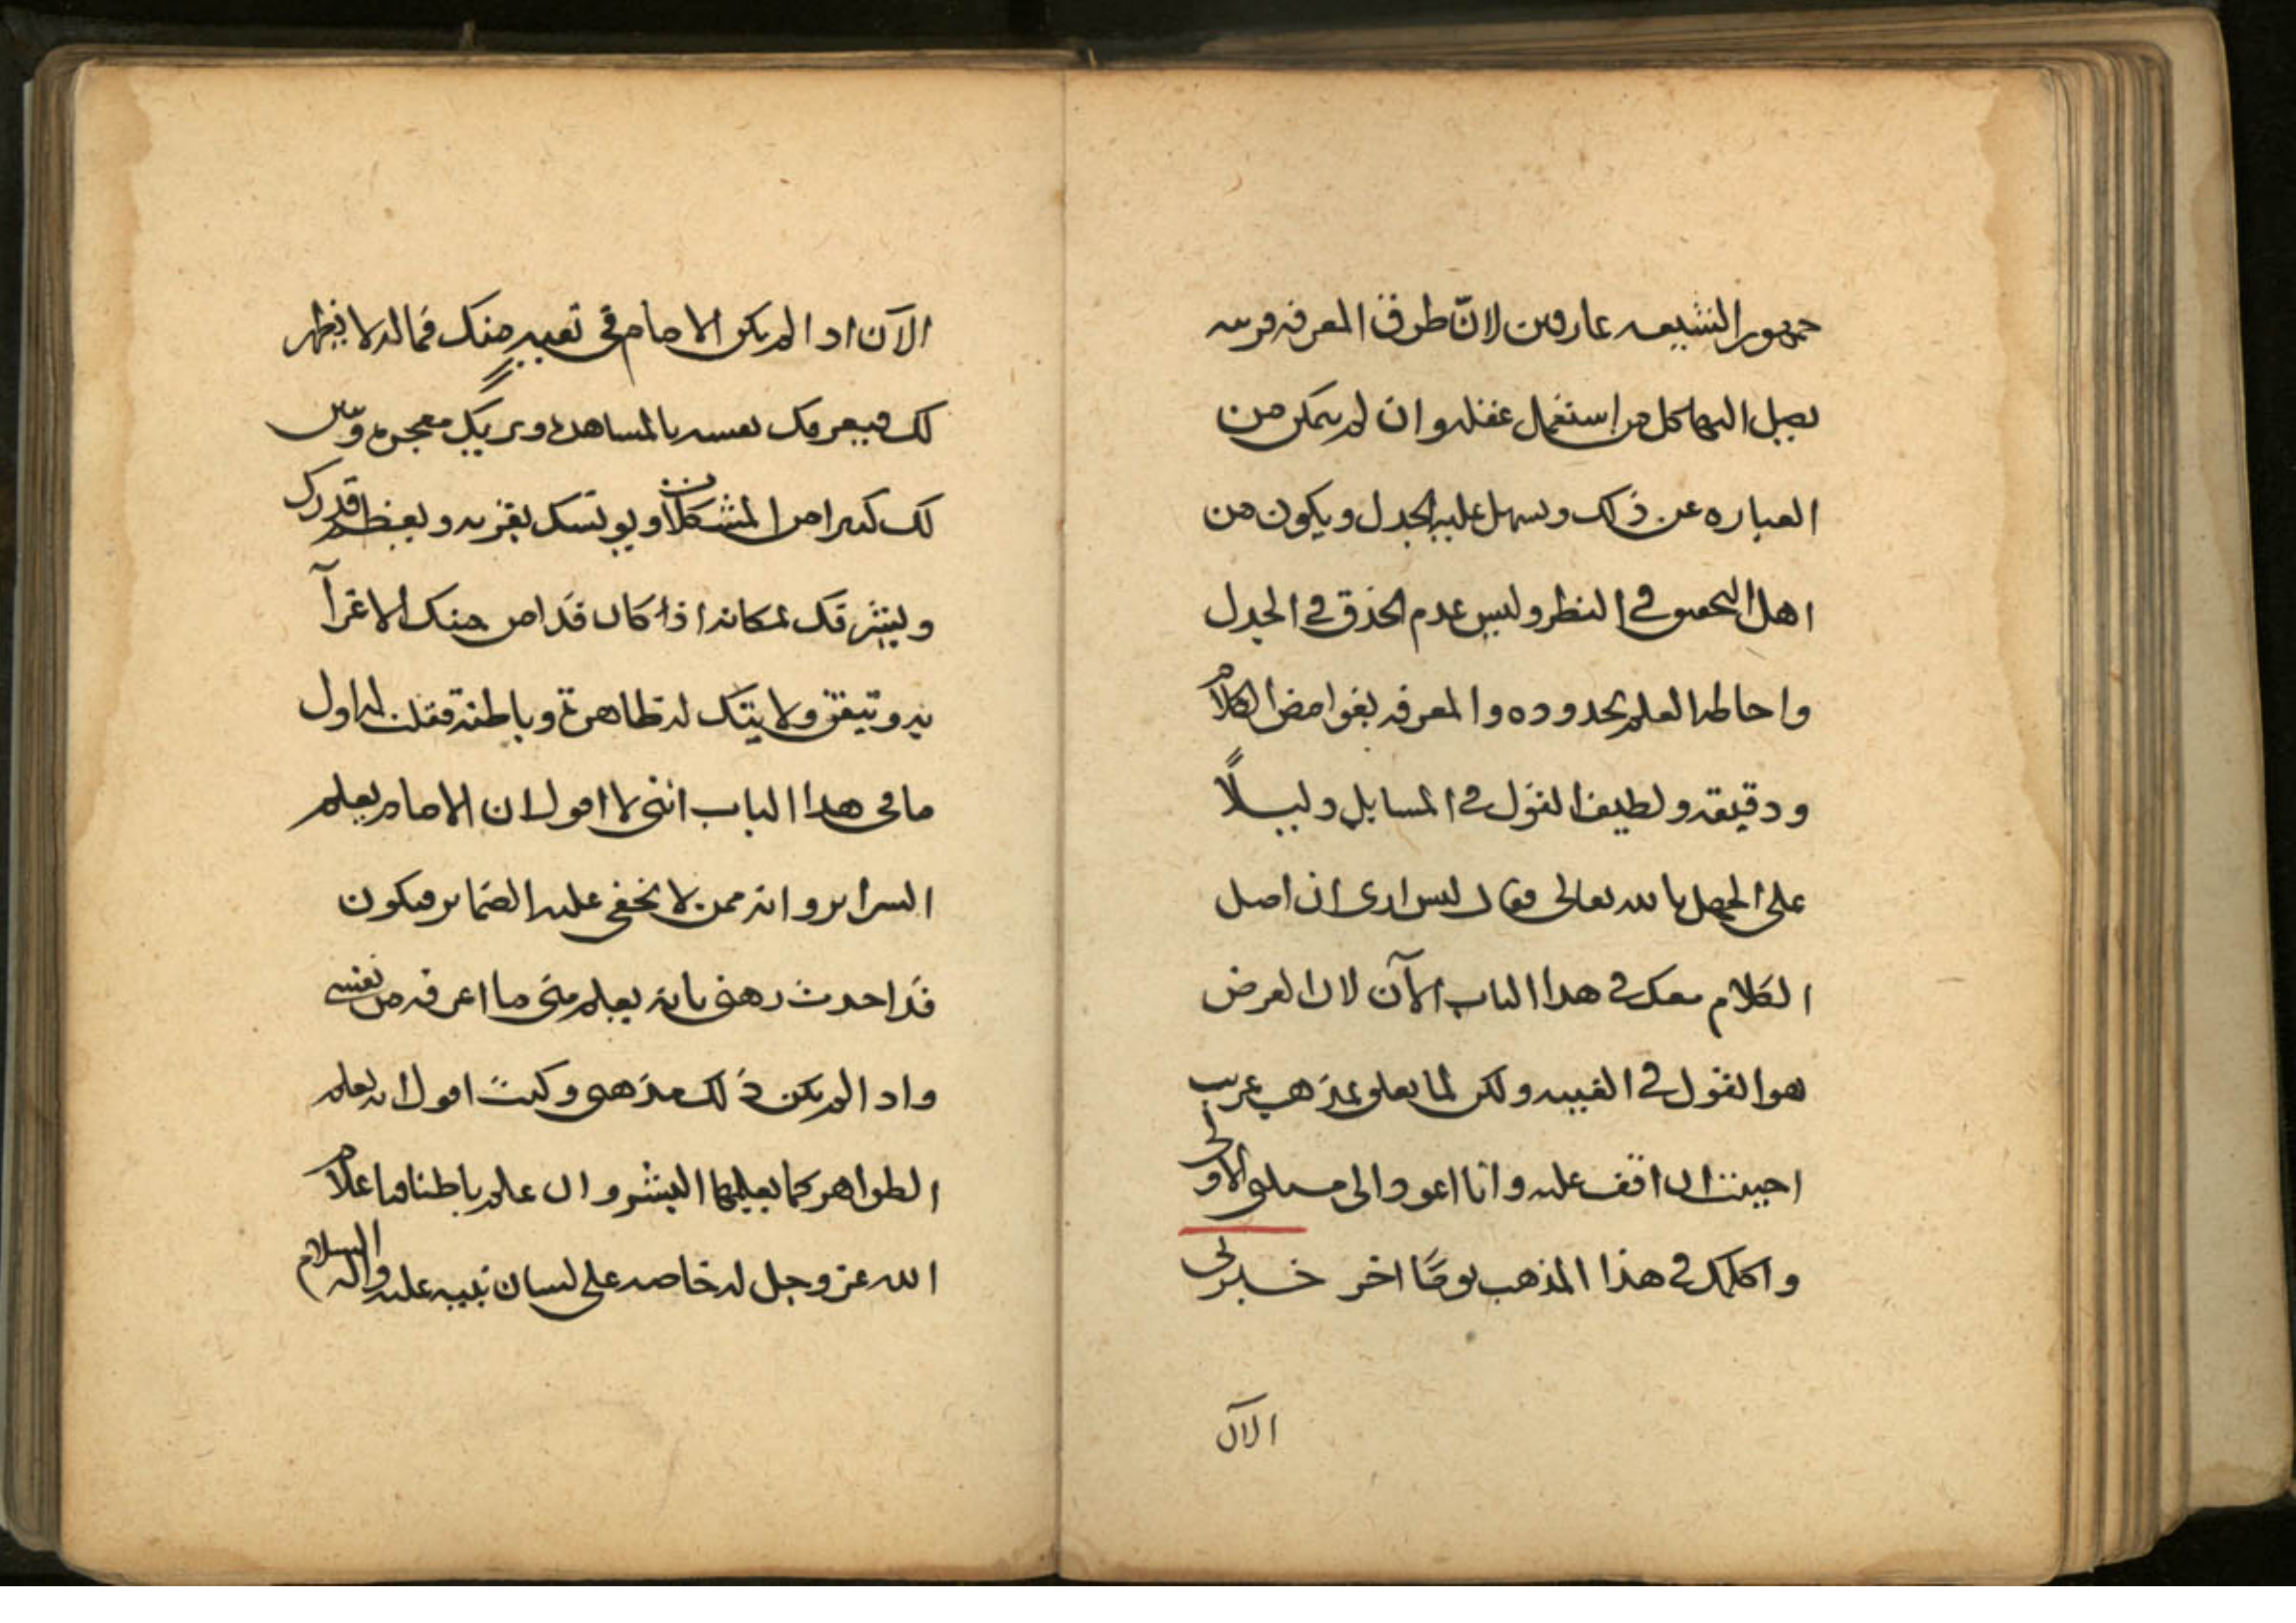 جمهور الشيعه عارفين لانّ طرق المعرفه قريبه
يصل اليها كل من استعمل عقله وان لم يتمكن من
العباره عن ذلك ويسهل عليه الجدل ويكون من
اهل التحقيق في النظر وليس عدم الحذق في الجدل
واحاطه العلم بحدوده والمعرفه بغوامض الكلام
ودقيقه ولطيف القول في المسايل دليلًا
على الجهل بالله تعالى فقال ليس ارى ان اصل
الكلام معك في هذا الباب الآن لان الغرض
هو القول في الغيبه ولكن لما تعلق بمذهب غريب
احببت ان اقف عليه وانا اعود الى مسلتي الاولى
واكلمك في هذا المذهب يومًا اخر خبرني
الان
الآن اذا لم يكن الامام في تقيةٍ منك فما له لا يظهر
لك فيعرفك نفسه بالمشاهده ويريك معجزته ويبين
لك كثيرا من المشكلات ويونسك بقربه ويعظم قدرك
ويشرفك بمكانه اذا كان قد امن منك الاغرآ
به وتيقن ولايتك له ظاهرة وباطنة فقلت له اول
ما في هذا الباب انني لا اقول ان الامام يعلم
السراير وانه ممن لا تخفى عليه الضماير فيكون
قد اخذت رهني بانه يعلم مني ما اعرفه من نفسي
واذا لم يكن ذلك مذهبي وكنت اقول انه يعلم
الظواهر كما يعلمها البشر وان علم باطنا فباعلام
الله عز وجل له خاصه على لسان نبيه عليه واله السلام